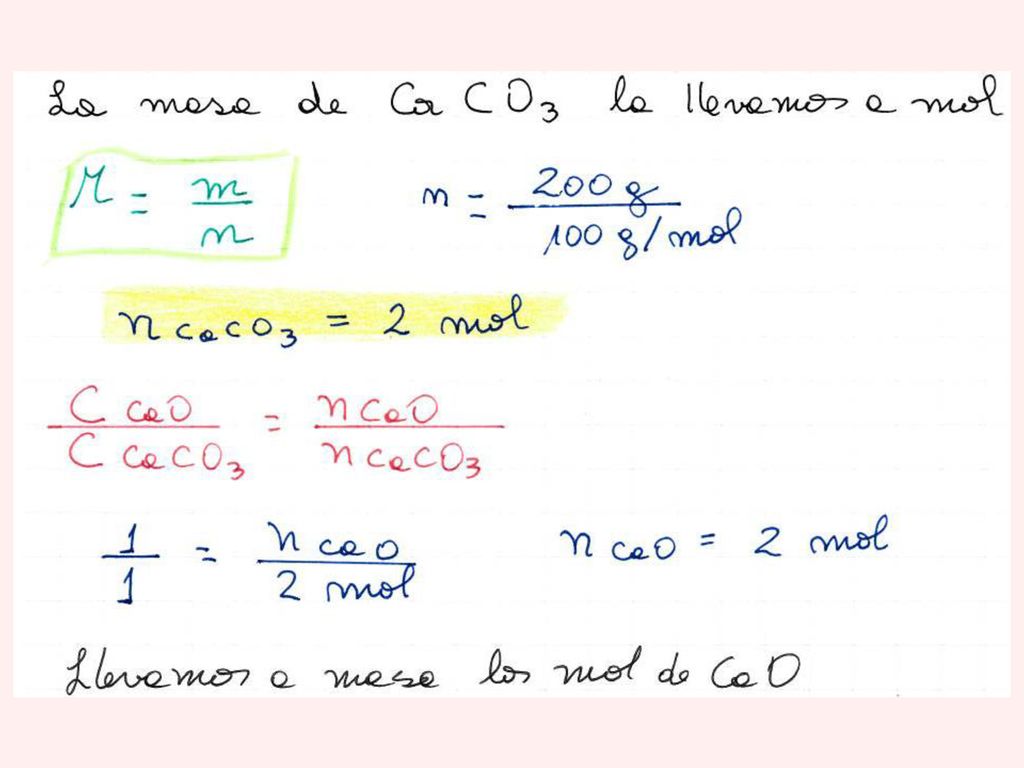 La masa de CaCO₃ la llevamos a mol
M = m/n n = 200 g / 100 g/mol
n CaCO₃ = 2 mol
C CaO / C CaCO₃ = n CaO / n CaCO₃
1/1 = n CaO / 2 mol n CaO = 2 mol
Llevamos a masa los mol de CaO